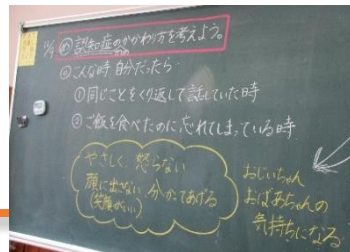 認知症のかかわり方を考えよう。
こんな時自分だったら
①同じことをくり返して話していた時
②ご飯を食べたのに忘れてしまっている時
やさしく、怒らない
顔に出さない 分かってあげる
(笑顔がいい)
おじいちゃん
おばあちゃんの
気持ちになる